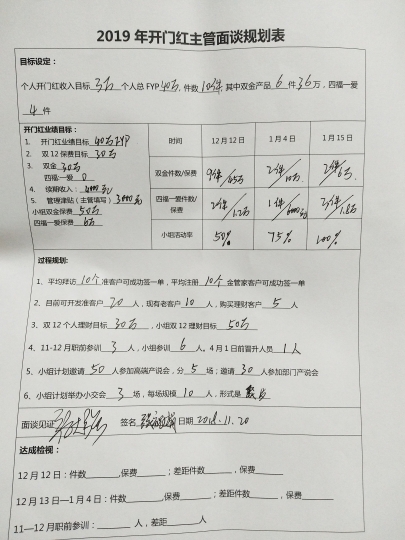 2019年开门红主管面谈规划表
目标设定：
个人开门红收入目标 3万 个人总FYP 40万, 件数 10件, 其中双金产品 6 件 36万，四福一爱
4 件
开门红业绩目标： 时间 12月12日 1月4日 1月15日
1. 开门红业绩目标 40万FYP
2. 双12保费目标 30万
3. 双金 30万 双金件数/保费 2件/10万 2件/6万
四福一爱 0
4. 续期收入： 4000元
5. 管理津贴（主管填写）3000元 四福一爱件数/保费 2件/1.2万 1件/6000元 3件/1.8万
小组双金保费 50万
四福一爱保费 6万 小组活动率 50% 75% 100%
过程规划：
1、平均拜访 10个 准客户可成功签一单，平均注册 10个 金管家客户可成功签一单
2、目前可开发准客户 20 人，现有老客户 10 人，购买理财客户 5 人
3、双12个人理财目标 30万，小组双12理财目标 50万
4、11-12月职前参训 3 人，小组参训 6 人。4月1日前晋升人员 1人
5、小组计划邀请 50 人参加高端产说会，分 5 场；邀请 30 人参加部门产说会
6、小组计划举办小交会 3 场，每场规模 10 人，形式是
面谈见证 签名 日期 2018.11.20
达成检视：
12月12日：件数____,保费____；差距件数____，保费____
12月13日—1月4日：件数____,保费____；差距件数____，保费____
11—12月职前参训：____人，差距____人